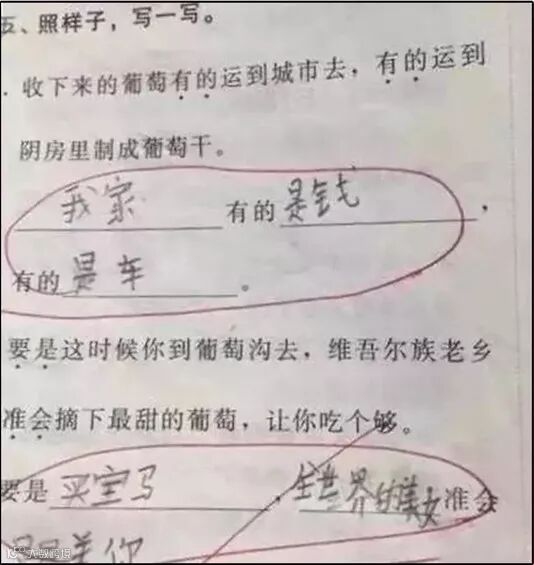 五、照样子，写一写。
. 收下来的葡萄有的运到城市去，有的运到
阴房里制成葡萄干。
我家有的是钱，
有的是车。
要是这时候你到葡萄沟去，维吾尔族老乡
准会摘下最甜的葡萄，让你吃个够。
要是买宝马，全世界的美女准会
美你
大数跨境